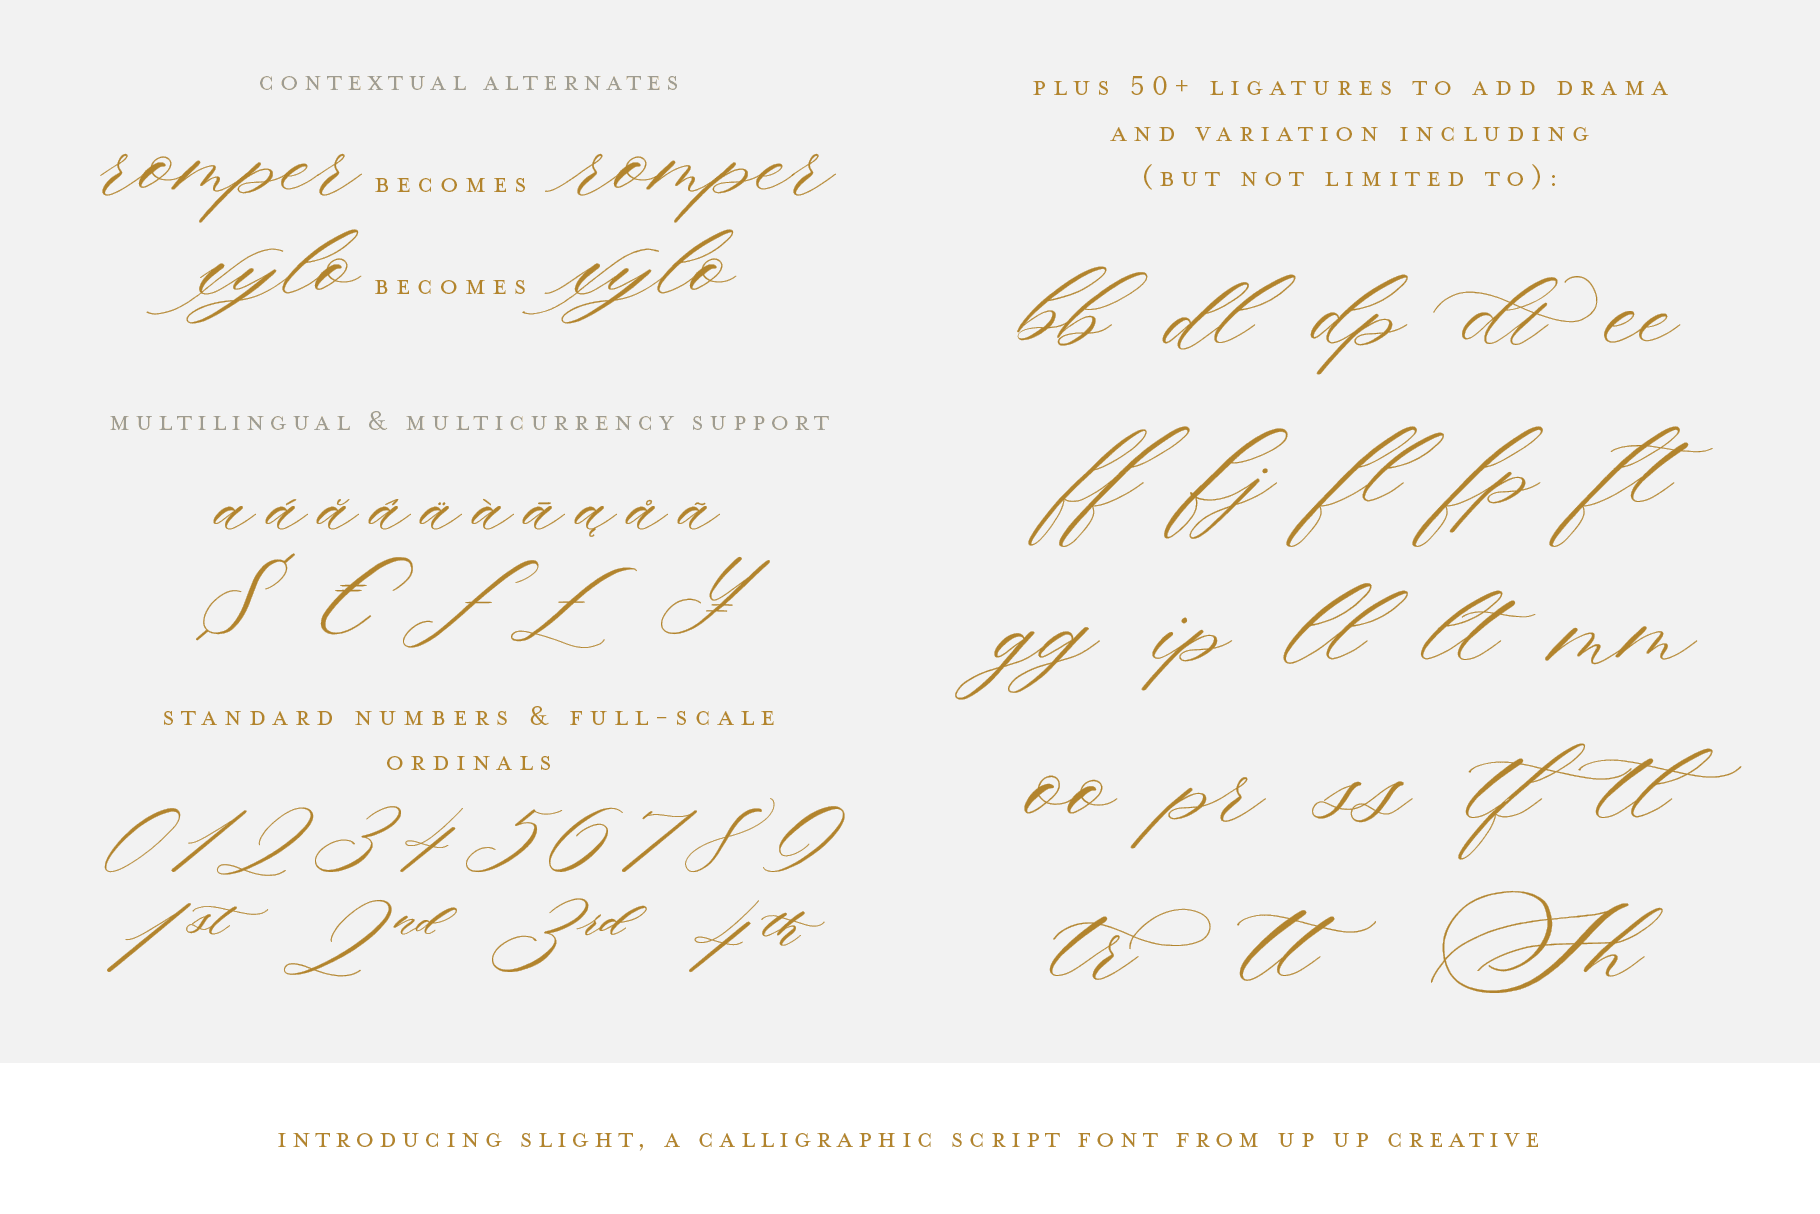 CONTEXTUAL ALTERNATES
romper BECOMES romper
xylo BECOMES xylo
MULTILINGUAL & MULTICURRENCY SUPPORT
a á ă â ä à ā ą å ã
$ € ƒ £ ¥
STANDARD NUMBERS & FULL-SCALE
ORDINALS
0 1 2 3 4 5 6 7 8 9
1st 2nd 3rd 4th
PLUS 50+ LIGATURES TO ADD DRAMA
AND VARIATION INCLUDING
(BUT NOT LIMITED TO):
bb dl dp dt ee
ff fj fl fp ft
gg ip ll lt mm
oo pr ss tf tl
tr tt Sh
INTRODUCING SLIGHT, A CALLIGRAPHIC SCRIPT FONT FROM UP UP CREATIVE